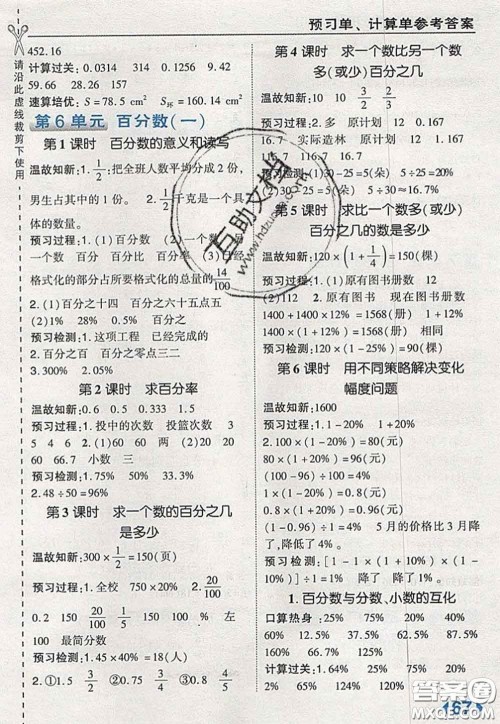 预习单、计算单参考答案
请沿此虚线裁剪下使用
452.16
计算过关:0.0314 314 0.1256 9.42
59.66 28.26 157
速算培优:S=78.5 cm² S环=160.14 cm²
第6单元 百分数(一)
第1课时 百分数的意义和读写
温故知新:1.1/2:把全班人数平均分成2份,
男生占其中的1份。 2.1/2千克是一个具
体的数量。
预习过程:1.(1)百分数 (2)百分数 百
分数 百分比 百分率 百分数 (3)已经
格式化的部分占所要格式化的总量的14/100
2.(1)百分之十四 百分之六十五点五
(2)1% 28% 0.5% 百分之
预习检测:1.这项工程 已经完成的
2.百分之百 百分之零点三二
第2课时 求百分率
温故知新:1.投中的次数 投篮次数 3
5 4 6 2.(1)60 60 (2)40 40
(3)0.6 60% 小数 三
预习检测:1.75% 50% 33.3%
2.48÷50=96%
第3课时 求一个数的百分之几
是多少
温故知新:300×1/2=150(页)
预习过程:1.全校 750×20% 2.20/100
0.2 150 20/100 1/5 150 150 % 左
100 最简分数
预习检测:1.45×40%=18(枚)
2.①1.5 3/2 ②0.15 3/20 ③0.8 4/5
第4课时 求一个数比另一个数
多(或少)百分之几
温故知新:20 10 3/2 2/3
预习过程:1.多 原计划 12 16
16 实际造林 原计划 2.(1)30 25
(2)(1)30-25=5(朵) 5÷25=20%
预习检测:30-25=5(朵) 5÷20=25%
第5课时 求比一个数多(或少)
百分之几的数是多少
温故知新:120×(1+1/4)=150(棵)
预习过程:1.原有图书册数 12
2.(2)112 3.原有图书 现在图书册数
1400+1400×12%=1568(册) 1400×
(1+12%)=1568(册) 相同
预习检测:120×(1-25%)=90(棵)
第6课时 用不同策略解决变化
幅度问题
温故知新:1600
2.100×(1-20%)=80(元)
80×(1+20%)=96(元)
(100-96)÷100=4%
1×(1-20%)=0.8(元)
0.8×(1+20%)=0.96(元)
(1-0.96)÷1=4% 5月的价格比3月降
了,降低了4%。
预习检测:1×(1+10%)×(1-10%)=
99% (1-99%)÷1=1% 降了 降了1%
1.百分数与分数、小数的互化
口算热身:27% 55% 125% 32%
64% 50% 75% 60% 0.1%
计算过关:27% 0.5% 240% 108%
2% 65% 124% 12.5% 60% 40%
167
互助文档
www.hdzuoye.com
答案圈
MXQE.COM